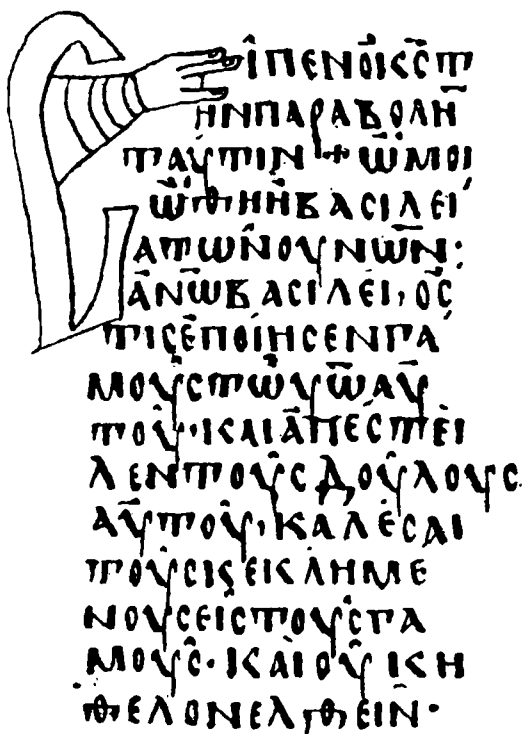 ΕἶΠΕΝΟΚ̅Σ̅Τ
ΗΝΠΑΡΑΒΟΛΗ̅
ΤΑΥΤΙΝ + ΩΜΟΙ
ΩΘΗΗΒΑΣΙΛΕΙ
ΑΤΩΝΟΥΝΩ̅Ν̅:
ΑΝ̅Ω̅ΒΑΣΙΛΕΙ, ΟΣ
ΤΙΣΕΠΟΙΗΣΕΝΓΑ
ΜΟΥΣΤΩΥ̅Ω̅ΑΥ
ΤΟΥ·ΚΑΙΑΠΕΣΤΕΙ
ΛΕΝΤΟΥΣΔΟΥΛΟΥΣ
ΑΥΤΟΥ, ΚΑΛΕΣΑΙ
ΤΟΥΣΚΕΙΚΛΗΜΕ
ΝΟΥΣΕΙΣΤΟΥΣΓΑ
ΜΟΥΣ·ΚΑΙΟΥΚΗ
ΘΕΛΟΝΕΛΘΕΙΝ·